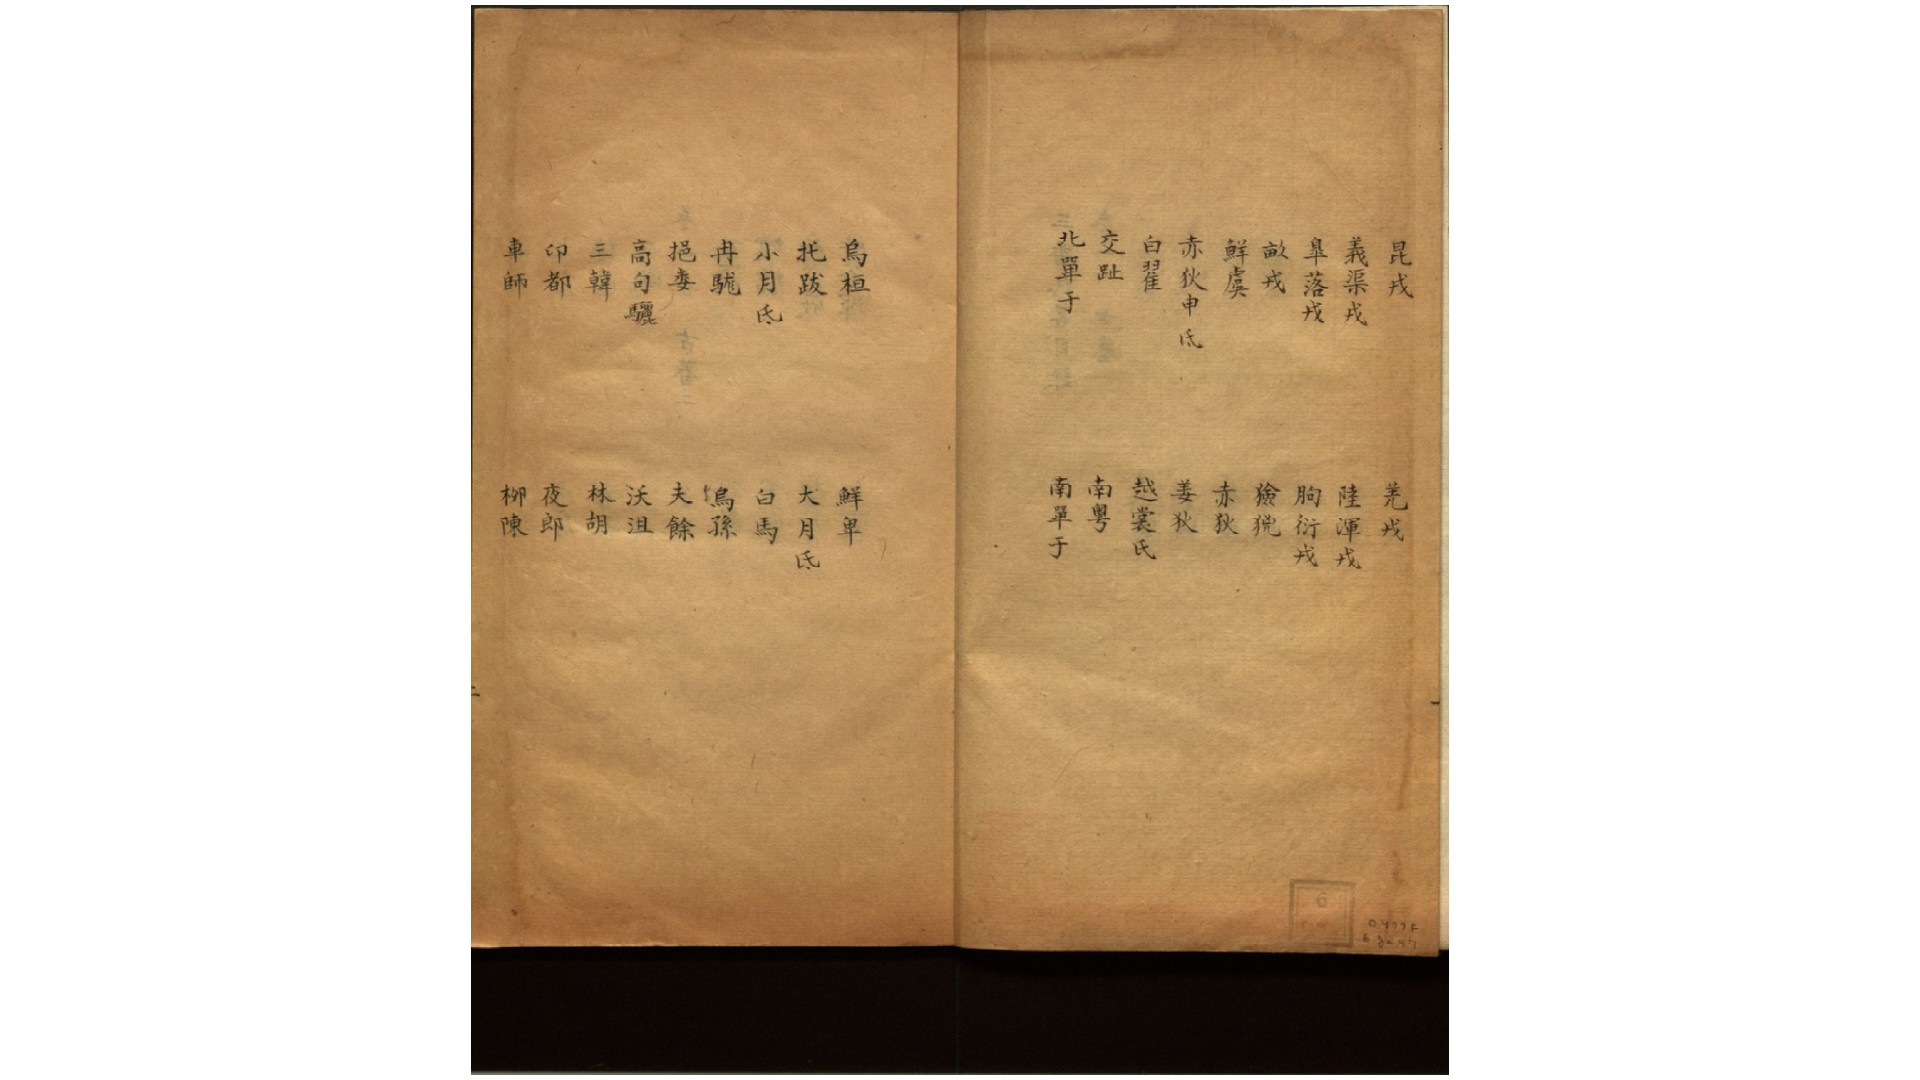 昆戎 羌戎
義渠戎 陸渾戎
皐落戎 朐衍戎
畝戎 獫狁
鮮虞 赤狄
赤狄申氐 姜狄
白翟 越裳氏
交趾 南粤
北單于 南單于
烏桓 鮮卑
托跋 大月氐
小月氐 白馬
冉駹 烏孫
挹婁 夫餘
高句驪 沃沮
三韓 林胡
卬都 夜郎
車師 柳陳